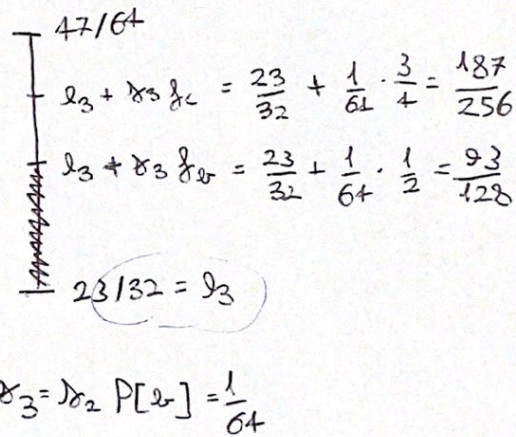 47/64
l₃ + s₃ f_c = 23/32 + 1/64 · 3/4 = 187/256
l₃ + s₃ f_b = 23/32 + 1/64 · 1/2 = 93/128
23/32 = l₃
s₃ = s₂ P[b] = 1/64